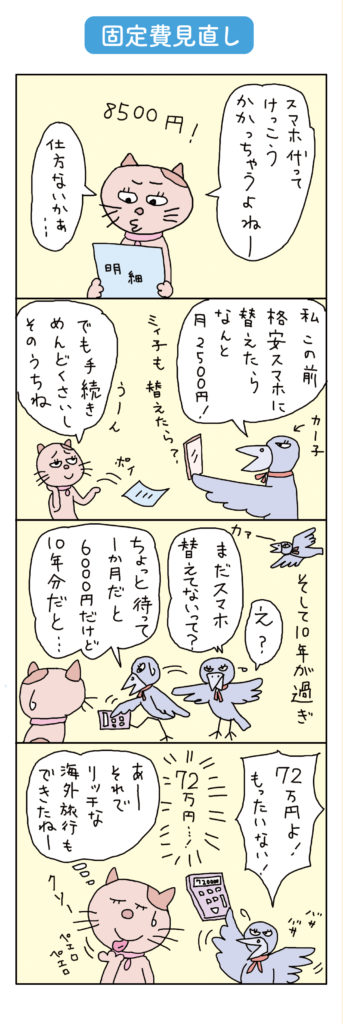 固定費見直し
スマホ代って
けっこう
かかっちゃうよねー
8500円!
仕方ないかぁ
…
明細
私この前
格安スマホに
替えたら
なんと
月2500円!
カー子
ミィ子も替えたら?
うーん
でも手続き
めんどくさいし
そのうちね
ポイ
カァー
そして10年が過ぎ
え?
まだスマホ
替えてないって?
ちょっと待って
1か月だと
6000円だけど
10年分だと…
72万円よ!
もったいない!
72万円…!
720000
あー
それで
リッチな
海外旅行も
できたねー
クソー
ペェロ
ペェロ
バサ
バサ